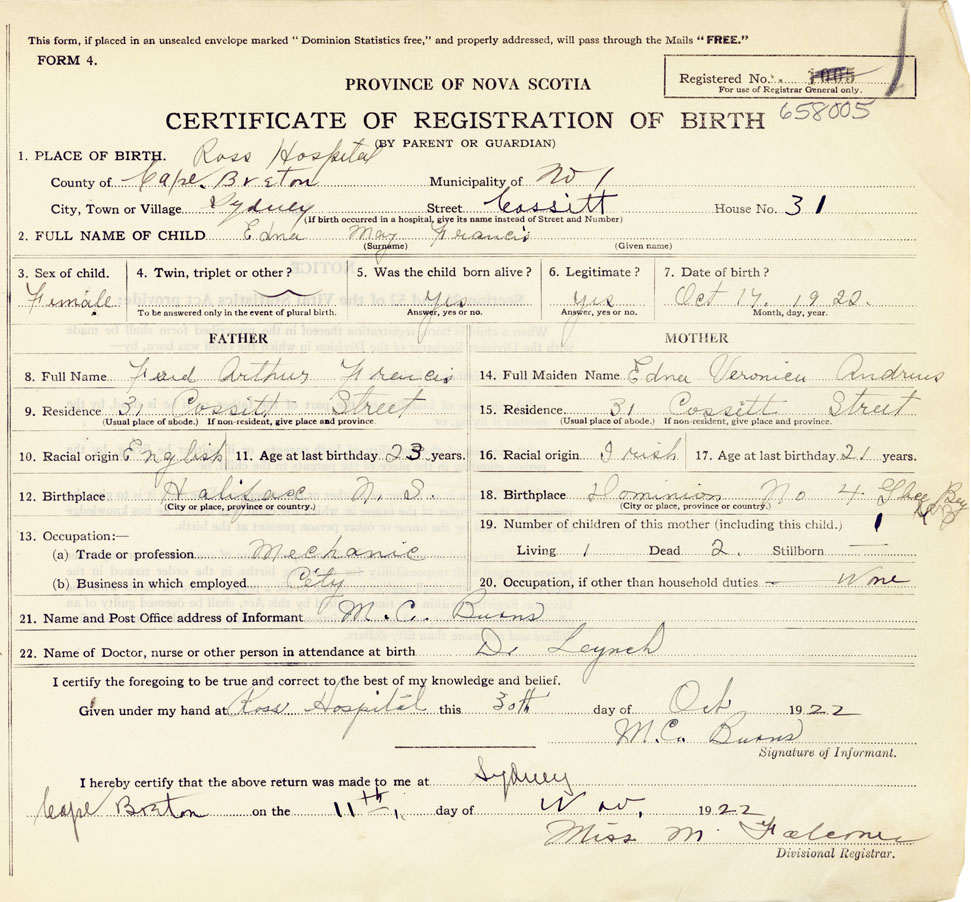 This form, if placed in an unsealed envelope marked "Dominion Statistics free," and properly addressed, will pass through the Mails "FREE."
FORM 4.
Registered No. 1005
For use of Registrar General only.
658005
PROVINCE OF NOVA SCOTIA
CERTIFICATE OF REGISTRATION OF BIRTH
(BY PARENT OR GUARDIAN)
1. PLACE OF BIRTH. Ross Hospital
County of Cape Breton Municipality of No 1
City, Town or Village Sydney Street Cossitt House No. 31
(If birth occurred in a hospital, give its name instead of Street and Number)
2. FULL NAME OF CHILD Edna May Francis
(Surname) (Given name)
3. Sex of child. 4. Twin, triplet or other? 5. Was the child born alive? 6. Legitimate? 7. Date of birth?
Female Yes Yes Oct 17, 1922.
To be answered only in the event of plural birth. Answer, yes or no. Answer, yes or no. Month, day, year.
FATHER MOTHER
8. Full Name Arthur Francis 14. Full Maiden Name Edna Veronica
9. Residence 31 Cossitt Street 15. Residence. 31 Cossitt Street
(Usual place of abode.) If non-resident, give place and province. (Usual place of abode.) If non-resident, give place and province.
10. Racial origin English 11. Age at last birthday 23 years. 16. Racial origin Irish 17. Age at last birthday 21 years.
12. Birthplace Halifax N. S. 18. Birthplace Dominion No 4 Glace Bay
(City or place, province or country.) (City or place, province or country.)
19. Number of children of this mother (including this child.) 1
13. Occupation:—
(a) Trade or profession Mechanic Living 1 Dead 2. Stillborn —
(b) Business in which employed City 20. Occupation, if other than household duties — None
21. Name and Post Office address of Informant M. C. Burns
22. Name of Doctor, nurse or other person in attendance at birth Dr Leynch
I certify the foregoing to be true and correct to the best of my knowledge and belief.
Given under my hand at Ross Hospital this 30th day of Oct 1922
M. C. Burns
Signature of Informant.
I hereby certify that the above return was made to me at Sydney
Cape Breton on the 11th day of Nov. 1922
Miss M. Falconer
Divisional Registrar.